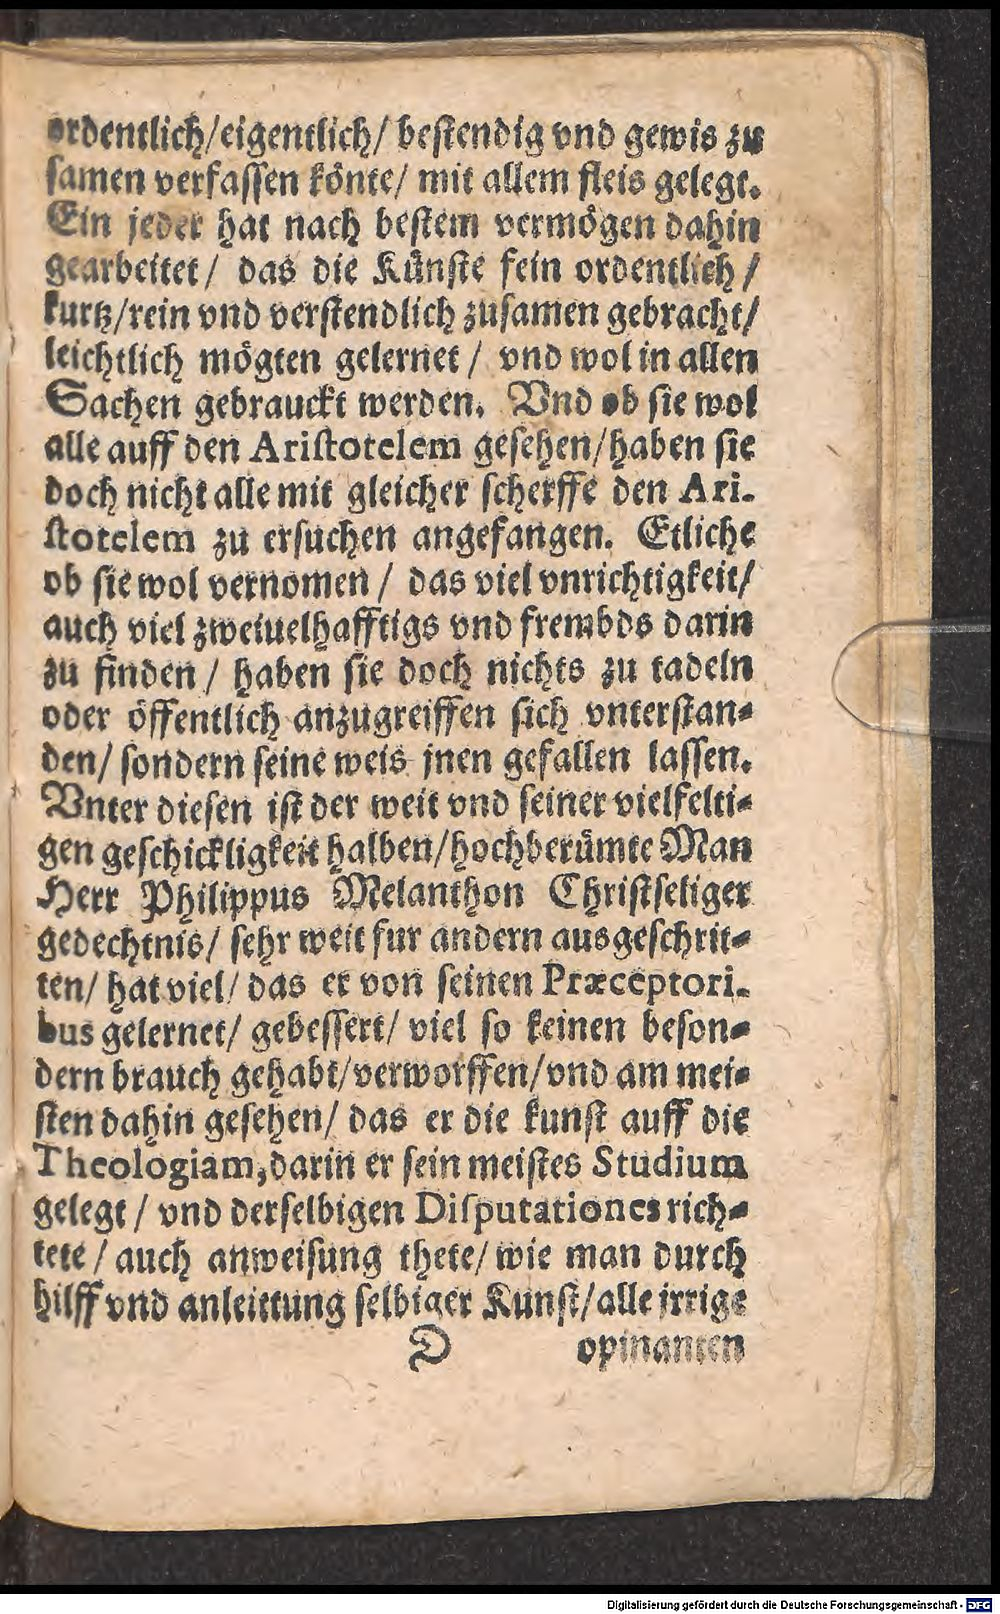 ordentlich/eigentlich/ bestendig vnd gewis zu
samen verfassen könte/ mit allem fleis gelegt.
Ein jeder hat nach bestem vermögen dahin
gearbeitet/ das die Künste fein ordentlich/
kurtz/rein vnd verstendlich zusamen gebracht/
leichtlich mögten gelernet/ vnd wol in allen
Sachen gebrauckt werden. Vnd ob sie wol
alle auff den Aristotelem gesehen/haben sie
doch nicht alle mit gleicher scherffe den Ari-
stotelem zu ersuchen angefangen. Etliche
ob sie wol vernomen/ das viel vnrichtigkeit/
auch viel zweiuelhafftigs vnd frembds darin
zu finden/ haben sie doch nichts zu tadeln
oder öffentlich anzugreiffen sich vnterstan-
den/ sondern seine weis jnen gefallen lassen.
Vnter diesen ist der weit vnd seiner vielfelti-
gen geschickligkeit halben/hochberümte Man
Herr Philippus Melanthon Christseliger
gedechtnis/ sehr weit fur andern ausgeschrit-
ten/ hat viel/ das er von seinen Præceptori-
bus gelernet/ gebessert/ viel so keinen beson-
dern brauch gehabt/verworffen/vnd am mei-
sten dahin gesehen/ das er die kunst auff die
Theologiam, darin er sein meistes Studium
gelegt/ vnd derselbigen Disputationes rich-
tete/ auch anweisung thete/ wie man durch
hilff vnd anleittung selbiger Kunst/alle jrrige
D opinanten
Digitalisierung gefördert durch die Deutsche Forschungsgemeinschaft - DFG